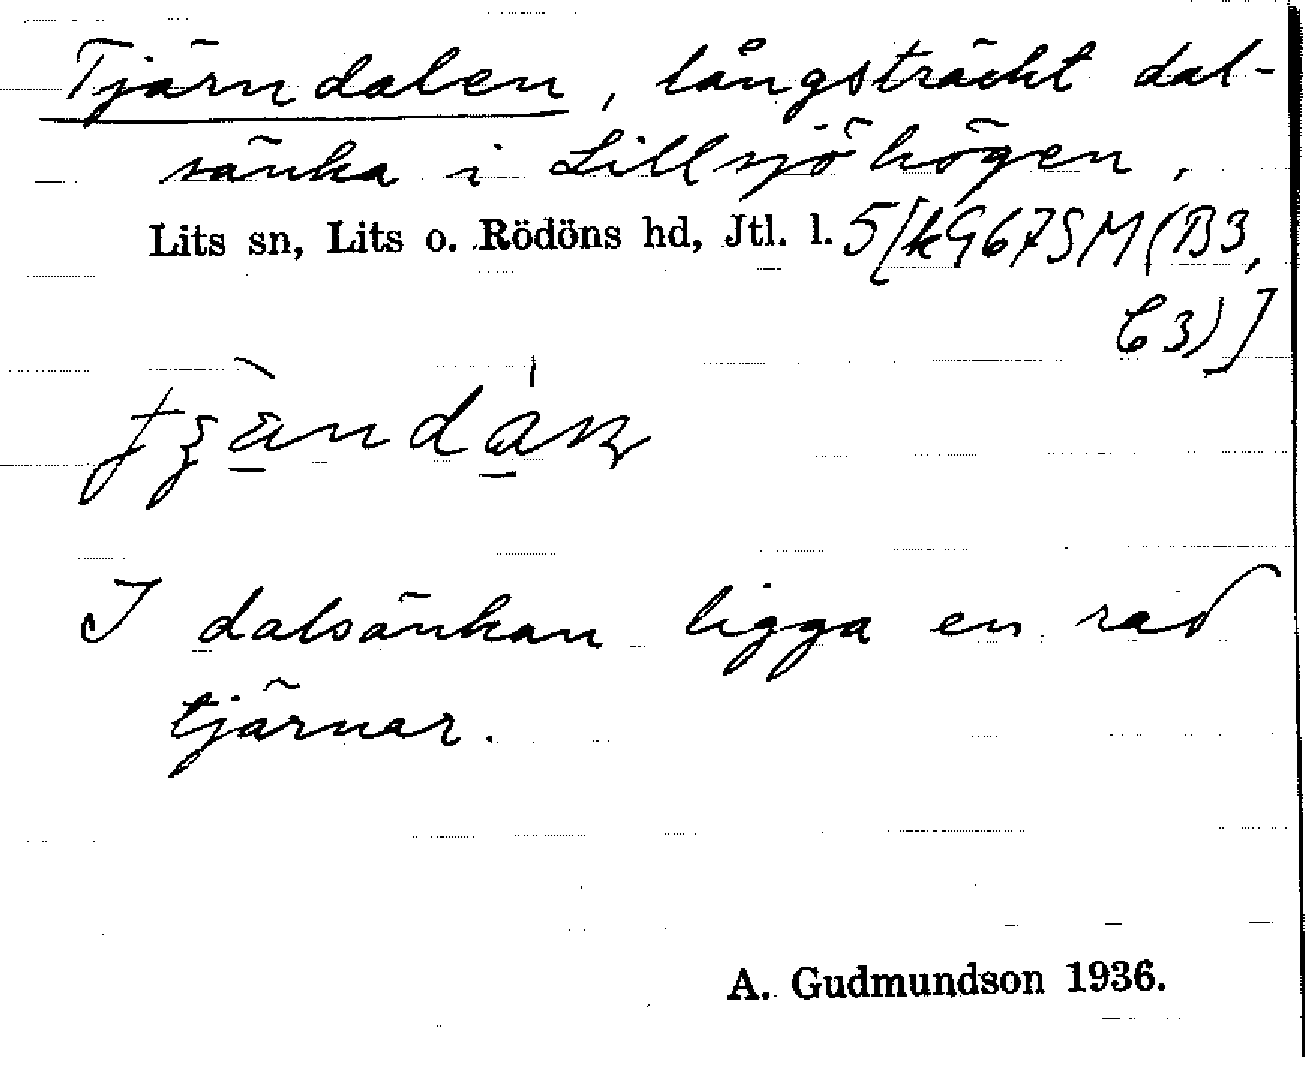 Tjärndalen, långsträckt dal-
sänka i Lillsjöhögen.
Lits sn, Lits o. Rödöns hd, Jtl. l. 5[kG67SM(B3,
C3)]
I dalsänkan ligga en rad
tjärnar.
A. Gudmundson 1936.